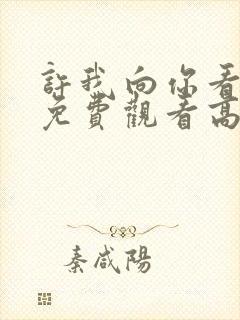 許我向你看
免費觀看高
秦咸陽